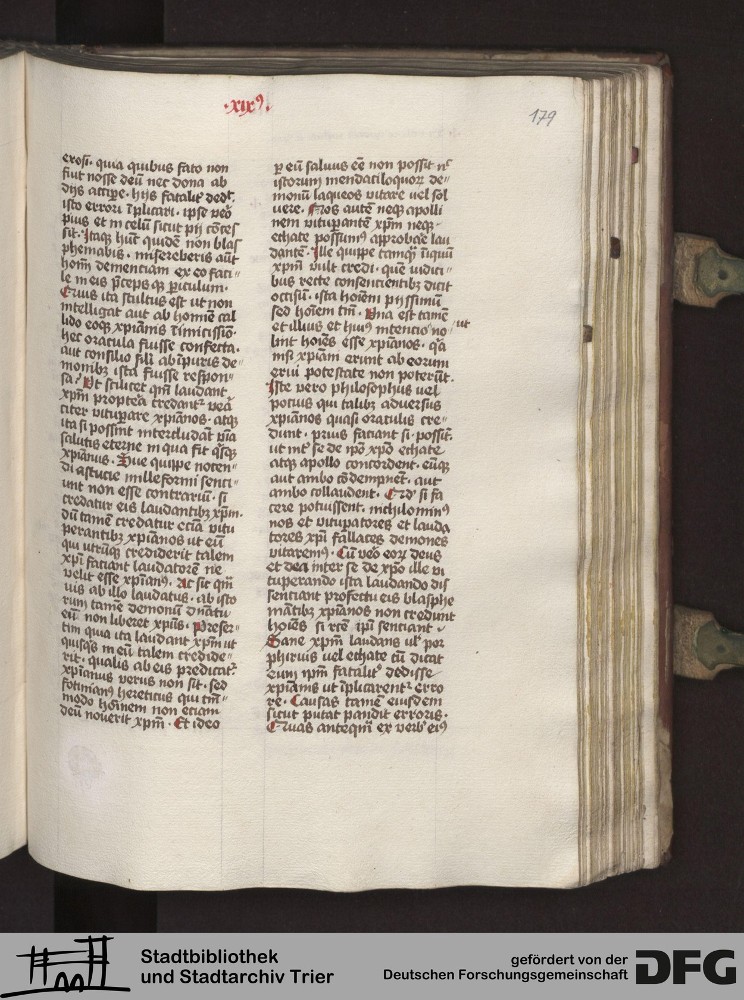 ·xix⁹·
179
exosi· quia quibus fato non
fiut nosse deū nec dona ab
dijs accipe· hijs fataliť dedť
isto errori īplicari· ipse ṽo
pius et in celū sicut pij cōces
sit· Itaqꝫ hūc quidē non blas
phemabis· misereberis aūt
homī dementiam ex eo faci
le in eis p̄ceps qꝫ ꝑiculum·
Cuius ita stultus est ut non
intelligat aut ab homīe cal
lido eoqꝫ xp̄ianis īimicissīo
hec oracula fuisse conficta·
aut consilio sīli ab īpuris de
monibꝫ ista fuisse respon
sa· Ut scilicet qm̄ laudant
xp̄m propt̄ea credant᷑ vera
citer vituꝑare xp̄ianos· atqꝫ
ita si possint intercludāt v̄ia
salutis eterne in qua fit qͥsqꝫ
xp̄ianus· Sue quippe nocen
di astucie milleformi senci
unt non esse contrariū· si
credatur eis laudantibꝫ xp̄m·
dū tamē credatur eciā vitu
perantibꝫ xp̄ianos ut eū
qui utrūqꝫ crediderit talem
xp̄i faciant laudatorē ne
velit esse xp̄ianꝰ· Ac sit qͣm
uis ab illo laudatus· ab isto
rum tamē demonū dn̄atu
eū non liberet xp̄us· Preser
tim quia ita laudant xp̄m ut
quisqͥs in eū talem credide
rit· qualis ab eis predicat᷑·
xp̄ianus verus non sit· sed
fotinianꝰ hereticus qui tm̄
modo hom̄inem non etiam
deū noverit xp̄m· Et ideo
ꝑ eū saluus eē non possit nͨ
istorum mendaciloquoꝝ de
monū laqueos vitare vel sol
vere· Nos autē neqꝫ apolli
nem vituꝑantē xp̄m neqꝫ
echate possumꝰ approbare lau
dantē· Ille quippe tamqͣ īiquū
xp̄m vult credi· quē iudici
bus recte consencientibꝫ dicit
occisū· ista hoīem pijssimū
sed hoīem tm̄· Una est tamē
et illius et huiꝰ intencio ut no
lint hoīes esse xp̄ianos· qͣa
nisi xp̄iani erunt ab eorum
erui potestate non poterūt·
Iste vero philosophus vel
potius qui talibꝫ adversus
xp̄ianos quasi oraculis cre
dunt· prius faciant si possūt·
ut int̄ se de ip̄o xp̄o echate
atqꝫ apollo concordent· eūqꝫ
aut ambo cōdempnēt· aut
ambo collaudent· Qᵈ si fa
cere potuissent· nichilominꝰ
nos et vituꝑatores et lauda
tores xp̄i fallaces demones
vitaremꝰ· Cū ṽo eoꝝ deus
et dea inter se de xp̄o ille vi
tuperando ista laudando dis
sentiant profecto eis blasphe
mātibꝫ xp̄ianos non credunt
hoīes si rc̄e ipī sentiant·
Sane xp̄m laudans ul᷑ por
phirius vel echate cū dicat
eum ip̄m fataliť dedisse
xp̄ianis ut īplicarent᷑ erro
re· Causas tamē eiusdem
sicut putat pandit erroris·
Quas anteqͣm ex verbꝭ eiꝰ
Stadtbibliothek
und Stadtarchiv Trier
gefördert von der
Deutschen Forschungsgemeinschaft
DFG